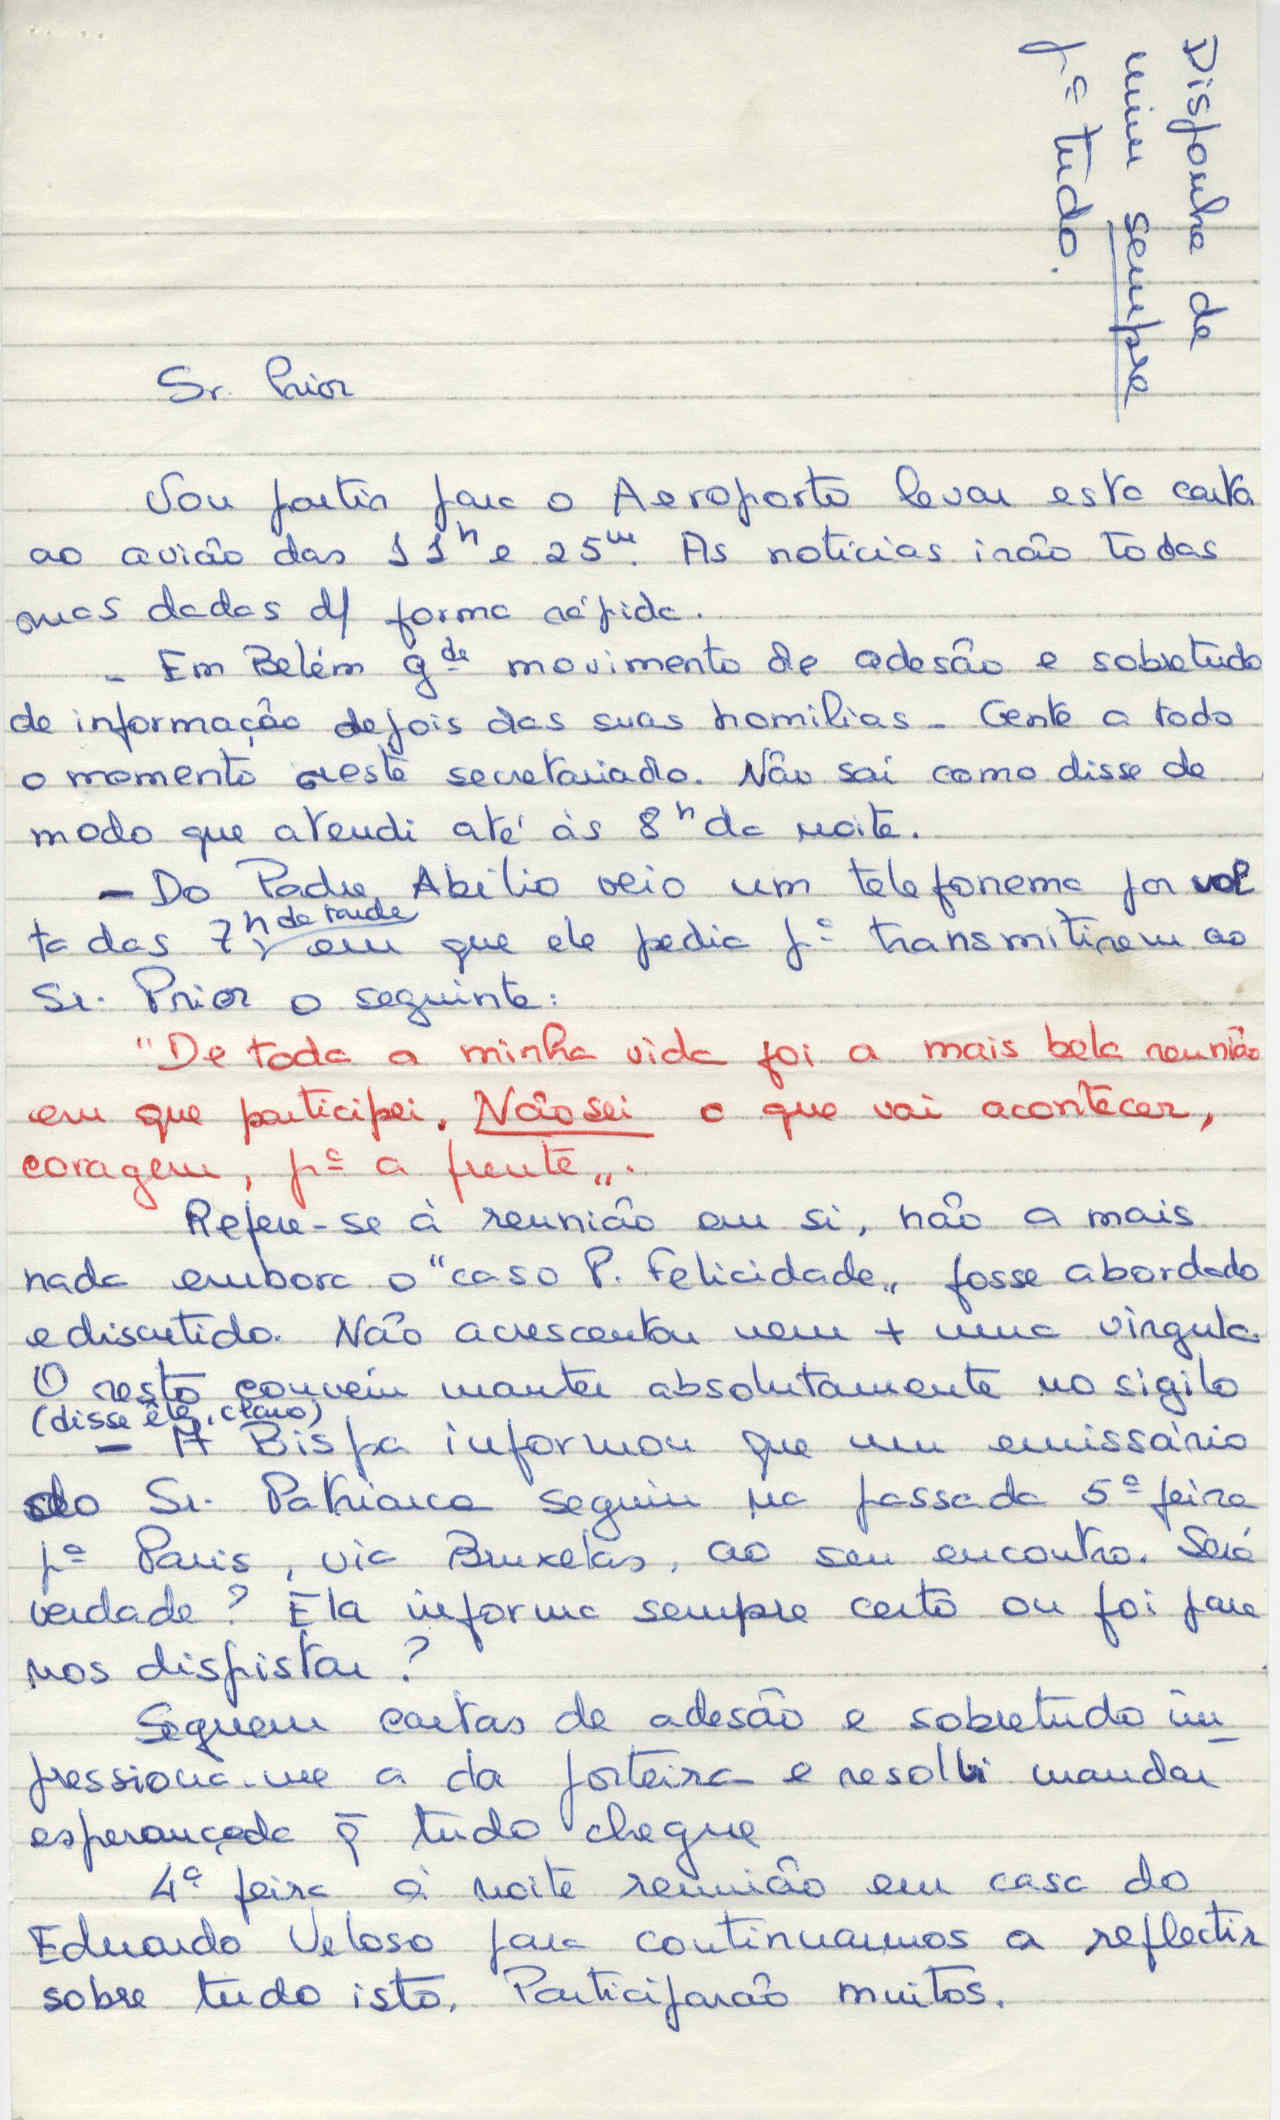 Disponha de
mim sempre
pª tudo.
Sr. Prior
Vou partir para o Aeroporto levar esta carta
ao avião das 11h e 25m. As notícias irão todas
mas dadas d/ forma rápida.
- Em Belém gde movimento de adesão e sobretudo
de informação depois das suas homilias - Gente a todo
o momento neste secretariado. Não saí como disse de
modo que atendi até às 8h da noite.
- Do Padre Abílio veio um telefonema por vol
ta das 7h da tarde, em que ele pedia pª transmitirem ao
Sr. Prior o seguinte:
"De toda a minha vida foi a mais bela reunião
em que participei. Não sei o que vai acontecer,
coragem, pª a frente".
Refere-se à reunião em si, não a mais
nada embora o "caso P. Felicidade" fosse abordado
e discutido. Não acrescentou nem + uma vírgula.
O resto convém manter absolutamente no sigilo
(disse êle, claro)
- A Bispa informou que um emissário
do Sr. Patriarca seguiu na passada 5ª feira
pª Paris, via Bruxelas, ao seu encontro. Será
verdade? Ela informa sempre certo ou foi para
nos despistar?
Seguem cartas de adesão e sobretudo im-
pressiona-me a da porteira e resolvi mandar
esperançada q̄ tudo chegue
4ª feira à noite reunião em casa do
Eduardo Veloso para continuarmos a reflectir
sobre tudo isto. Participarão muitos.